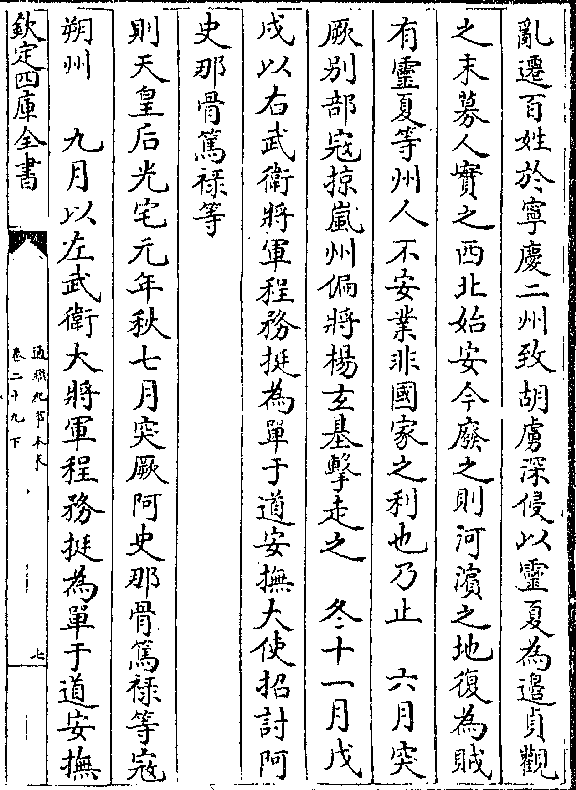 亂遷百姓於寧慶二州致胡虜深侵以靈夏為邉貞觀
之末募人實之西北始安今廢之則河濱之地復為賊
有靈夏等州人不安業非國家之利也乃止　六月突
厥别部寇掠嵐州偏將楊玄基擊走之　冬十一月戊
戌以右武衛將軍程務挺為單于道安撫大使招討阿
史那骨篤禄等
則天皇后光宅元年秋七月突厥阿史那骨篤禄等寇
朔州　九月以左武衛大將軍程務挺為單于道安撫
欽定四庫全書
通鑑紀事本末
卷二十九下
七